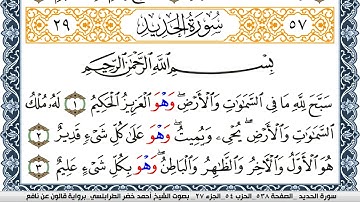 ٥٧ سُورَةُ الحَدِيدِ ٢٩
بِسْمِ اللَّهِ الرَّحْمَٰنِ الرَّحِيمِ
سَبَّحَ لِلَّهِ مَا فِي السَّمَٰوَٰتِ وَالْأَرْضِ وَهْوَ الْعَزِيزُ الْحَكِيمُ ١ لَهُ مُلْكُ
السَّمَٰوَٰتِ وَالْأَرْضِ يُحْيِۦ وَيُمِيتُ وَهْوَ عَلَىٰ كُلِّ شَيْءٍ قَدِيرٌ ٢
هُوَ الْأَوَّلُ وَالْآخِرُ وَالظَّٰهِرُ وَالْبَاطِنُ وَهْوَ بِكُلِّ شَيْءٍ عَلِيمٌ ٣
سورة الحديد _ الصفحة ٥٣٨ _ الحزب ٥٤ _ الجزء ٢٧ _ بصوت الشيخ أحمد خضر الطرابلسي _ برواية قالون عن نافع